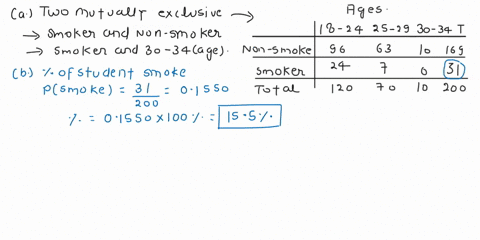 (a) Two mutually exclusive →
→ smoker and non-smoker
→ smoker and 30-34 (age).
(b) % of student smoke
P(smoke) = 31/200 = 0.1550
% = 0.1550 x 100 % = 15.5 %
Ages.
18-24 25-29 30-34 T
Non-smoke 96 63 10 169
smoker 24 7 0 31
Total 120 70 10 200